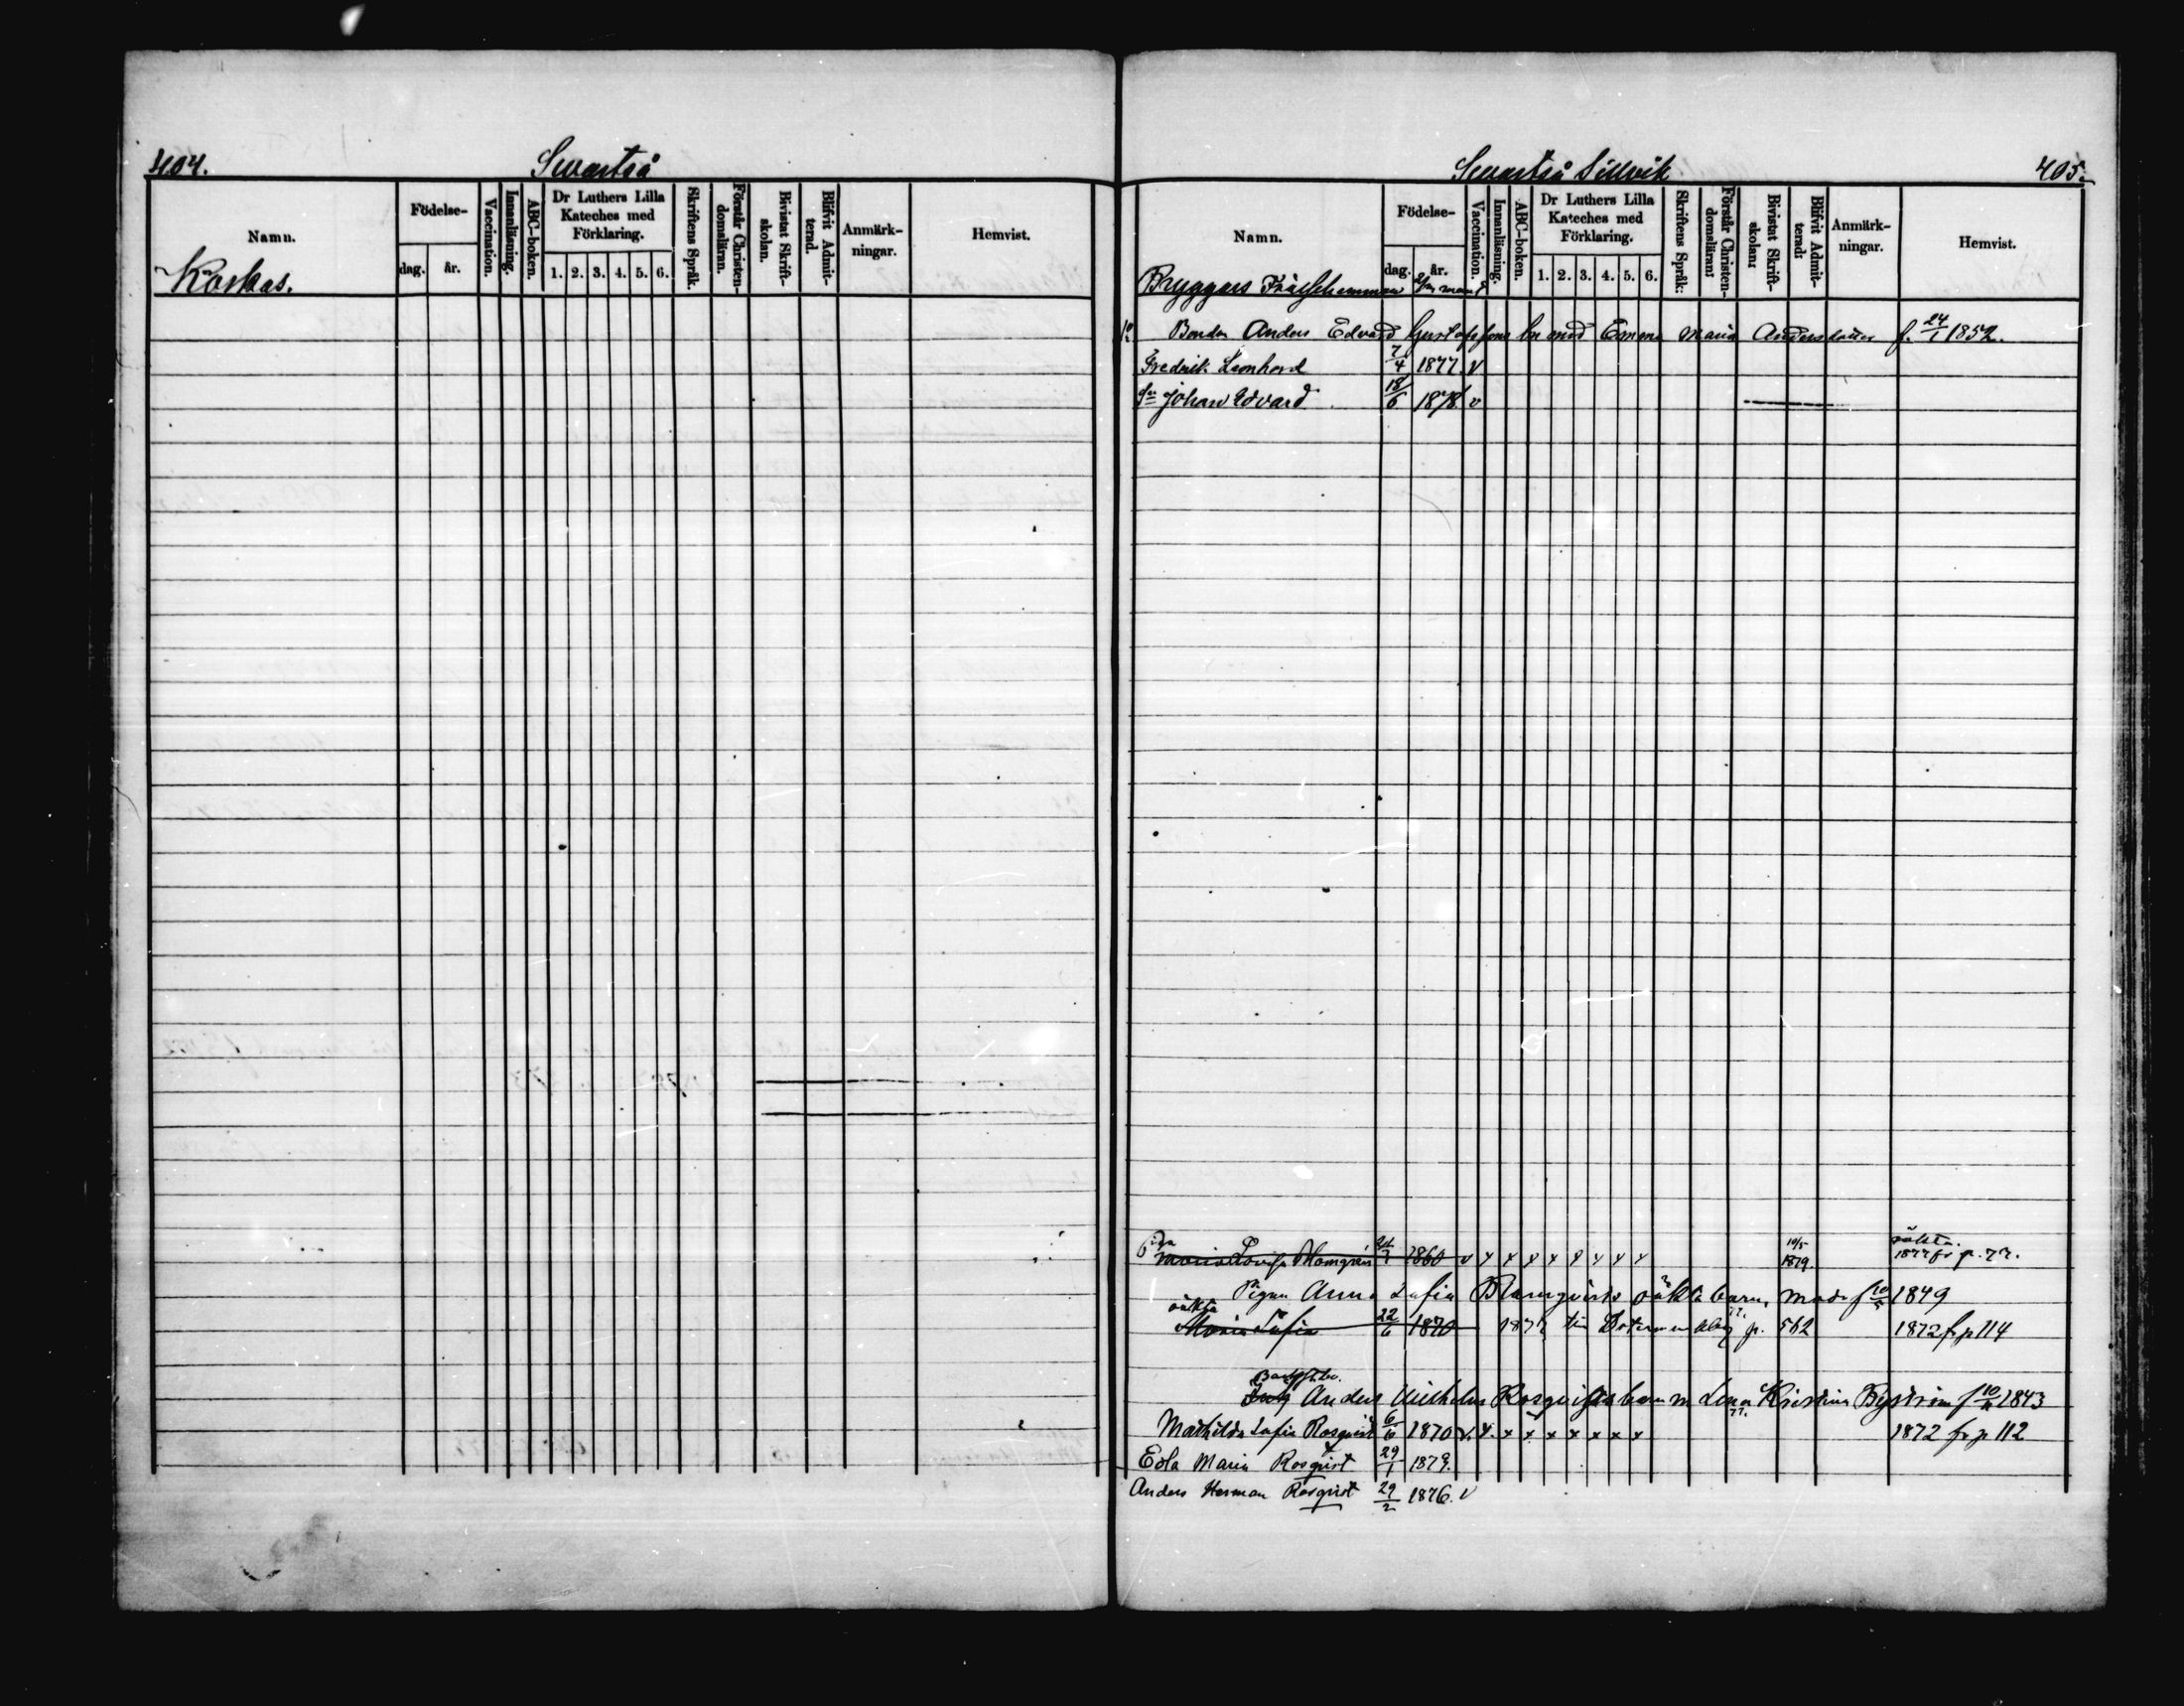 404. Swartså
Namn.
Födelse-
dag. år.
Vaccination.
Innanläsning.
ABC-boken.
Dr Luthers Lilla Kateches med Förklaring.
1. 2. 3. 4. 5. 6.
Skriftens Språk.
Förstår Christen-domsläran.
Bivistat Skrift-skolan.
Blifvit Admit-terad.
Anmärk-ningar.
Hemvist.
Koskas.
Swartså Sillvik 405.
Namn.
Födelse-
dag. år.
Vaccination.
Innanläsning.
ABC-boken.
Dr Luthers Lilla Kateches med Förklaring.
1. 2. 3. 4. 5. 6.
Skriftens Språk:
Förstår Christen-domsläran:
Bivistat Skrift-skolan:
Blifvit Admit-terad:
Anmärk-ningar.
Hemvist.
Bryggars Frälsehemman
Bonden Anders Edvard Gustafssons bn med Emma Maria Andersdotter f. 24/1 1852.
Fredrik Leonhard 7/4 1877. v
Johan Edvard 18/6 1878. v
Piga 10/5 oäkta.
Maria Lovisa Blomqvist 1860 v x x x x x x x x 1879. 1877 fr p. 77.
Pigan Anna Sofia Blomqvists oäkta barn, mod. f 10/ 1849
oäkta
Maria Sofia 22/6 1870 till p. 562 1872 fr p 114
Anders Wilhelm Rosqvists barn m Lena Kristina Byström f 10/ 1843
Mathilda Sofia Rosqvist 6/6 1870 v. x. x x x x x x x 1872 fr p 112
Eda Maria Rosqvist 29/1 1879.
Anders Herman Rosqvist 29/2 1876. v